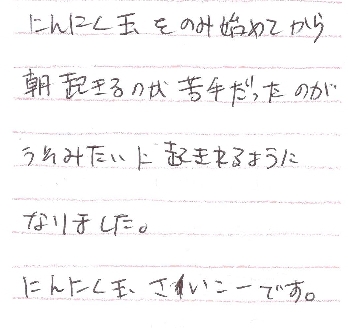 にんにく玉をのみ始めてから
朝起きるのが苦手だったのが
うそみたいに起きれるように
なりました。
にんにく玉、さいこーです。